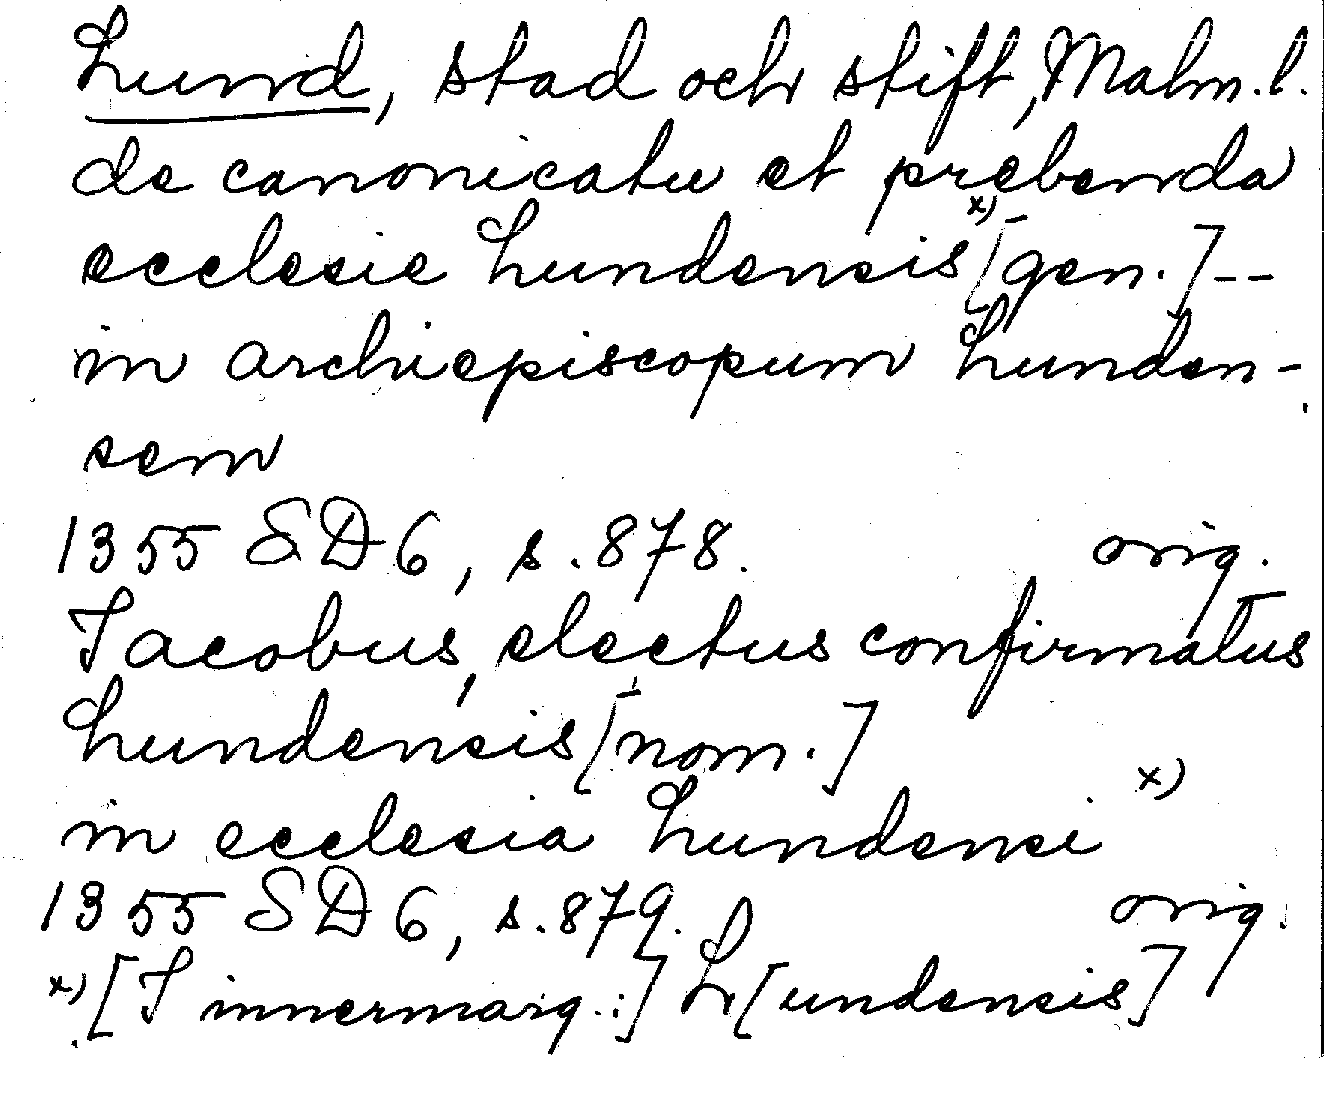 Lund, stad och stift, Malm. l.
de canonicatu et prebenda
ecclesie Lundensis x) [gen.] --
in archiepiscopum Lunden-
sem
1355 SD 6, s. 878. orig.
Iacobus, electus confirmatus
Lundensis [nom.]
in ecclesia Lundensi x)
1355 SD 6, s. 879. orig.
x) [I innermarg.:] L[undensis]